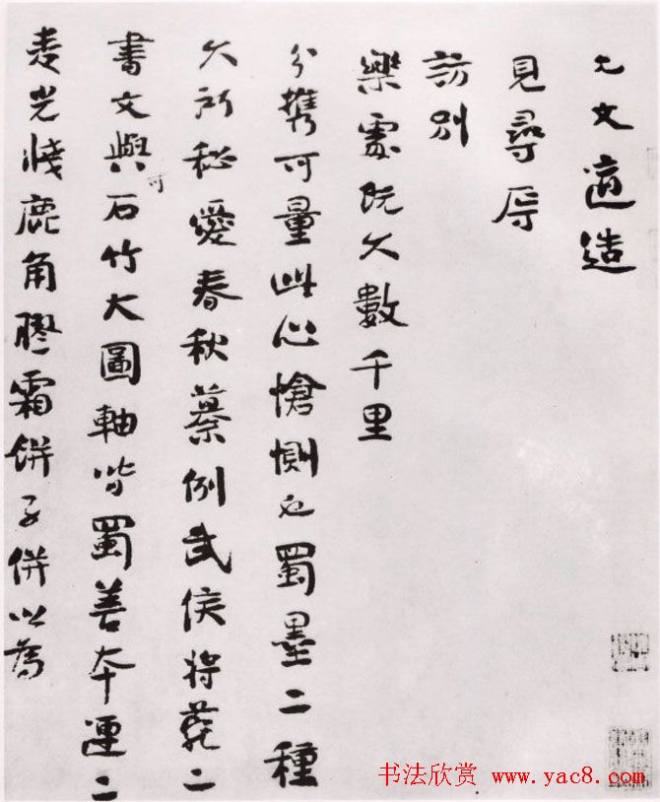 允文適造
見尋辱
訪別
樂處既久數千里
分攜可量此心愴惻也蜀墨二種
久所秘愛春秋纂例武侯將苑二
書文與可石竹大圖軸皆蜀善本連二
麦光牋鹿角膠霜餅子併以為
书法欣赏 www.yac8.com